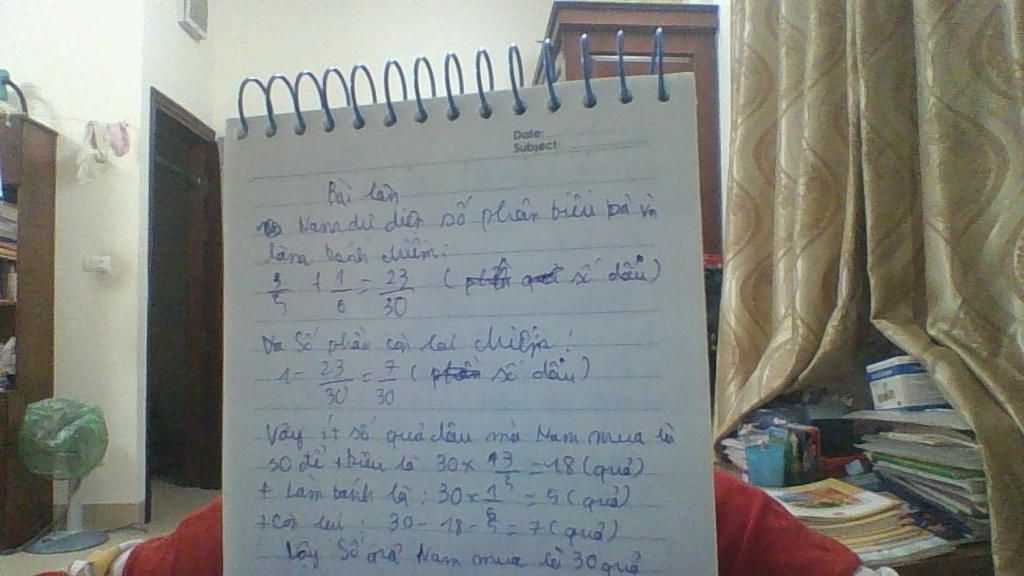 Date:
Subject
Bài làm
Nam dự diện số phần biếu bà và
làm bánh chiếm:
3/5 + 1/6 = 23/30 ( số dâu)
Số phần còn lại chiếm:
1 - 23/30 = 7/30 ( số dâu)
Vậy ít số quả dâu mà Nam mua là
30 để + biếu là 30 x 3/5 = 18 (quả)
+ Làm bánh là : 30 x 1/6 = 5 (quả)
+ Còn lại : 30 - 18 - 5 = 7 (quả)
Vậy số quả Nam mua là 30 quả